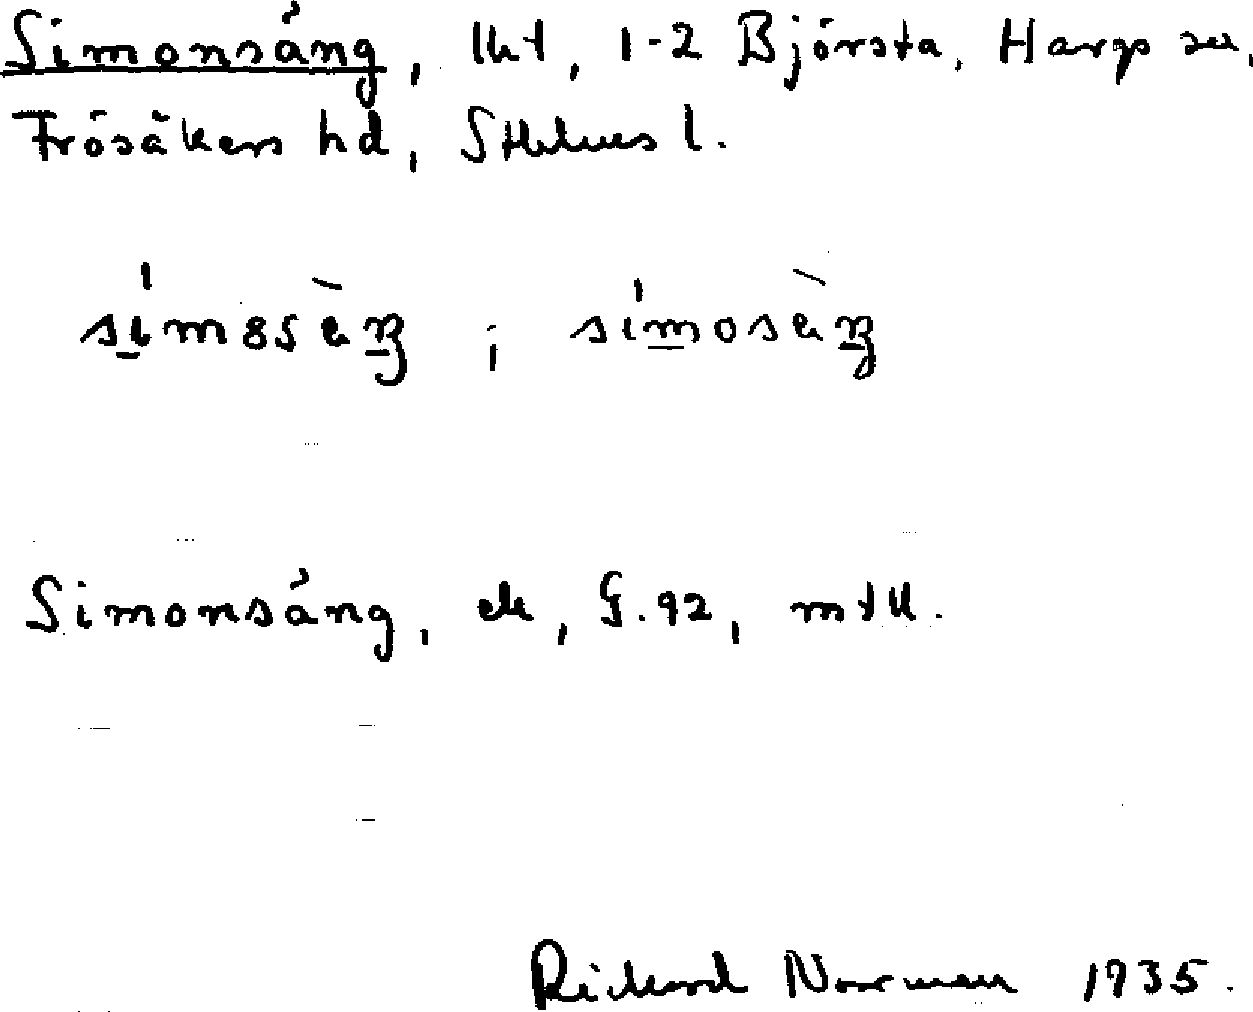 Simonsäng, lht, 1-2 Björsta, Hargs sn,
Frösåkers hd, Sthlms l.
Simonsäng, ek, G.92, mtK.
Rickard Norman 1935.